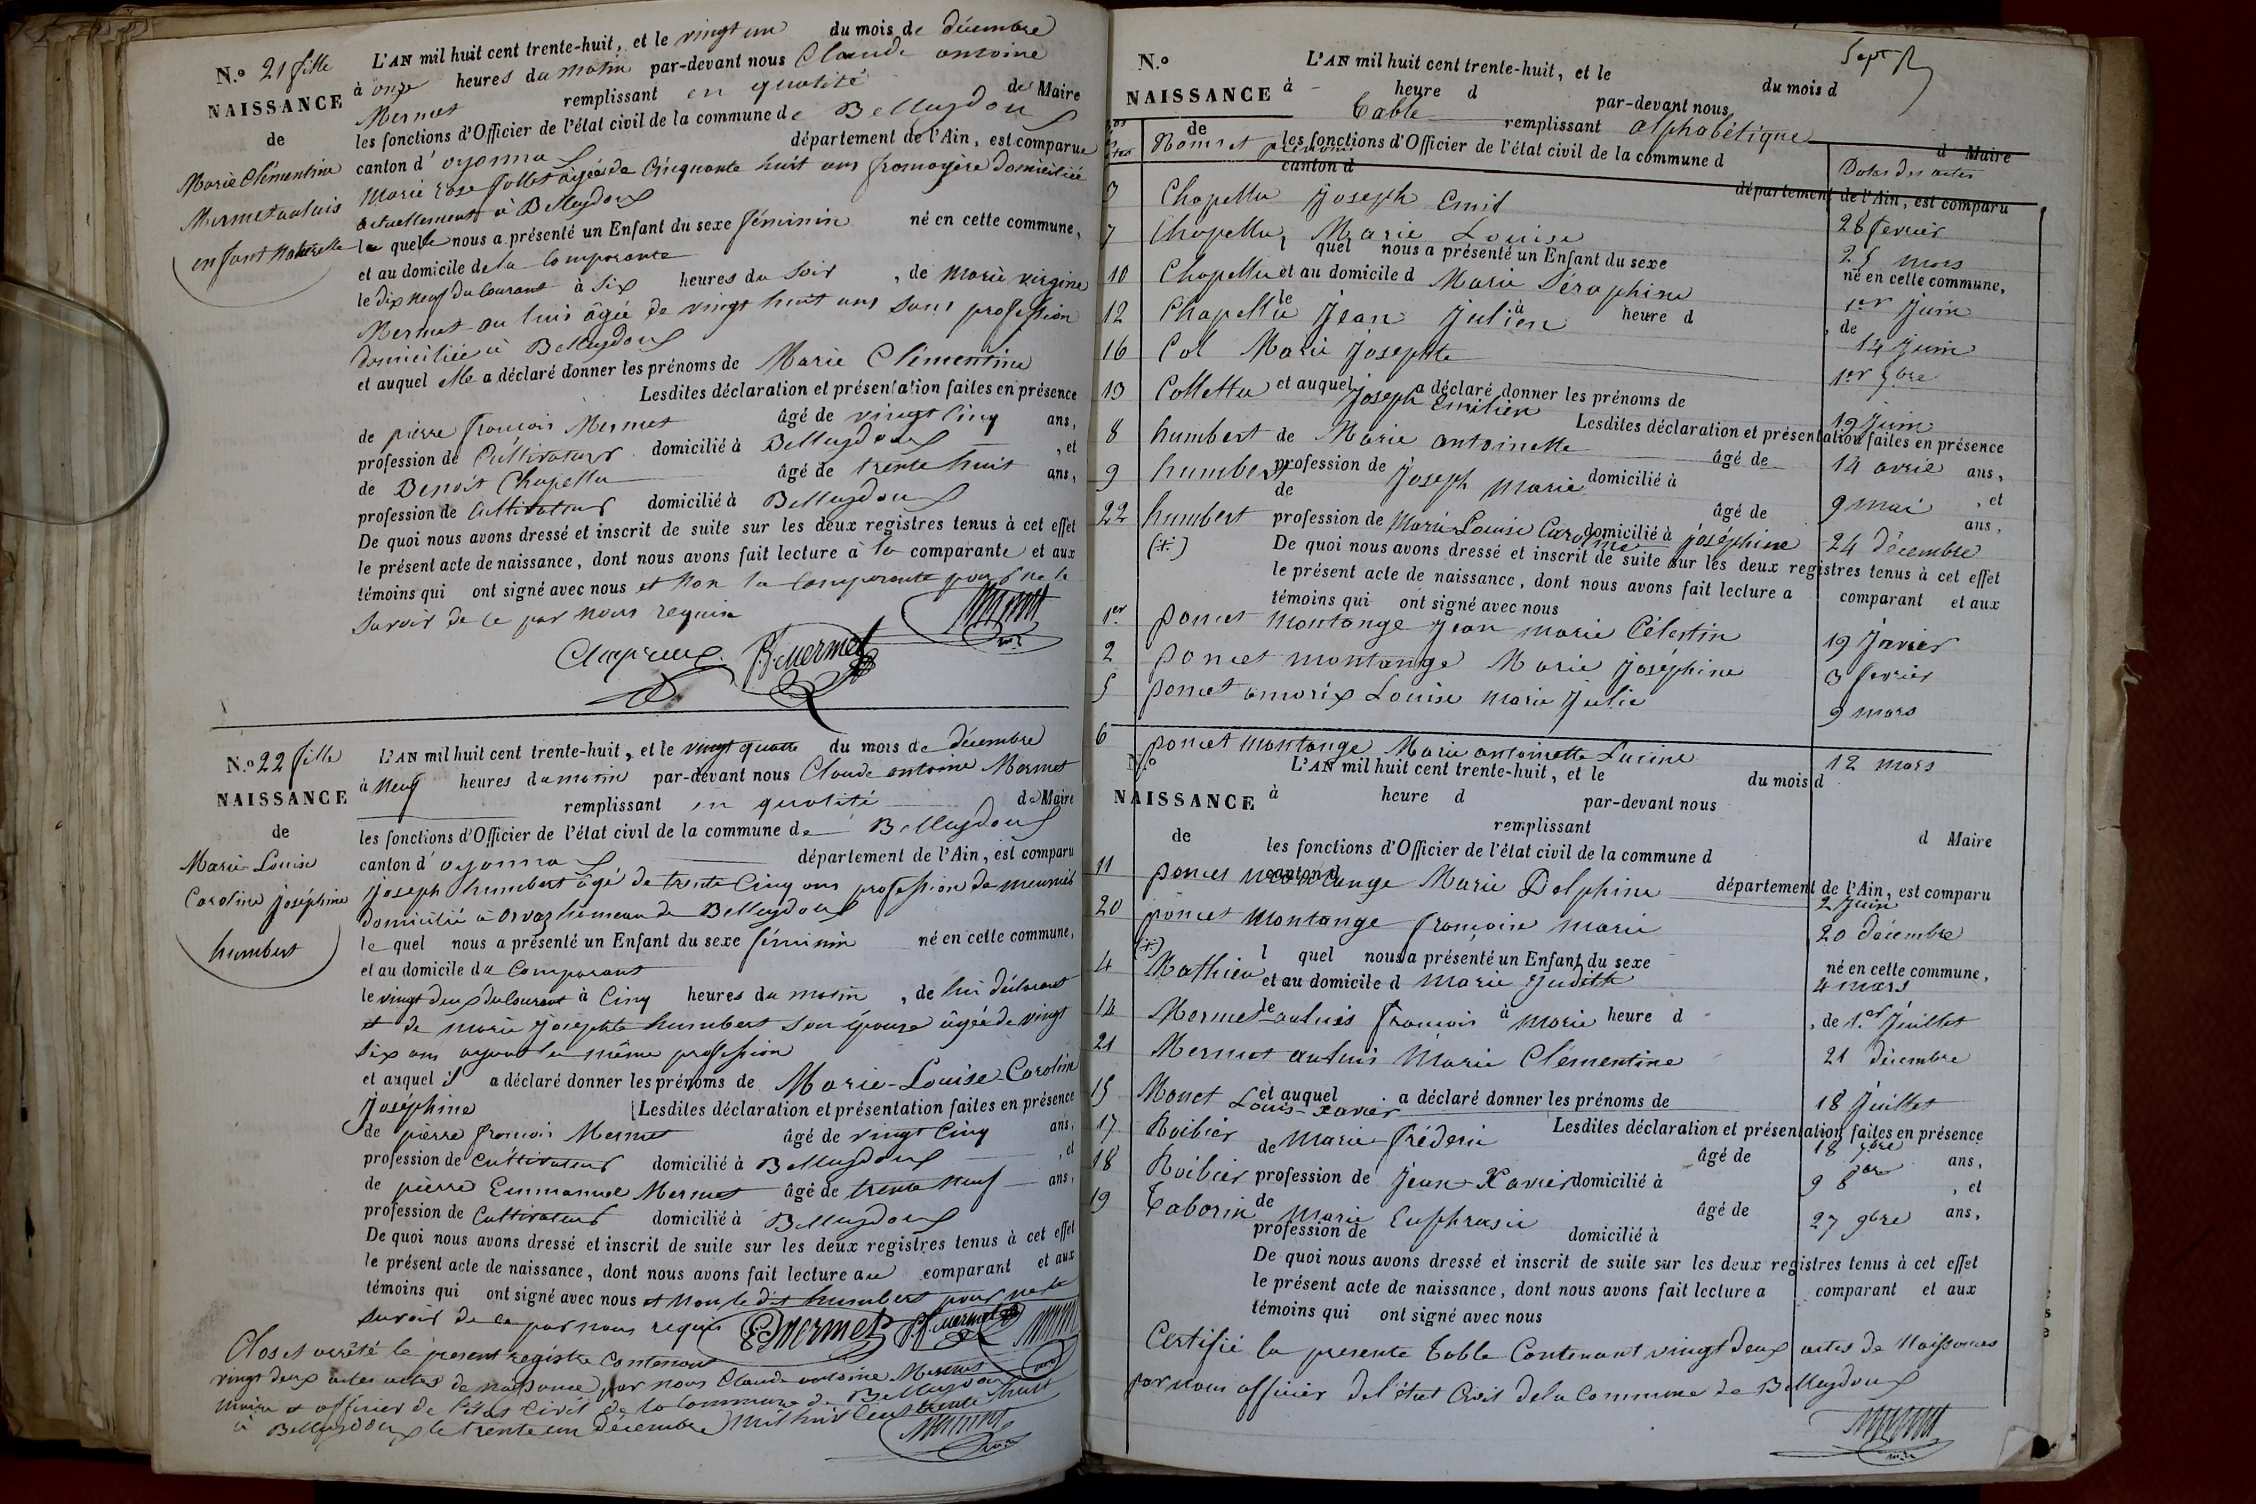 N.º 21 fille
NAISSANCE
de
Marie Clémentine
Mermet auluis
enfant Naturelle
L'AN mil huit cent trente-huit, et le vingt un du mois de décembre
à onze heures du matin par-devant nous Claude antoine
Mermet remplissant en qualité de Maire
les fonctions d'Officier de l'état civil de la commune de Belleydoux
canton d'oyonnax département de l'Ain, est comparue
Marie Rose âgée de Cinquante huit ans fromagère domiciliée
actuellement à Belleydoux
la quelle nous a présenté un Enfant du sexe féminin né en cette commune,
et au domicile de la Comparante
le dix neuf du Courant à Six heures du Soir, de Marie virginie
Mermet au luis âgée de vingt huit ans Sans profession
domiciliée à Belleydoux
et auquel elle a déclaré donner les prénoms de Marie Clémentine
Lesdites déclaration et présentation faites en présence
de pierre françois Mermet âgé de vingt Cinq ans,
profession de Cultivateur domicilié à Belleydoux, et
de Benoit Chapellu âgé de trente huit ans,
profession de Cultivateur domicilié à Belleydoux
De quoi nous avons dressé et inscrit de suite sur les deux registres tenus à cet effet
le présent acte de naissance, dont nous avons fait lecture à la comparante et aux
témoins qui ont signé avec nous et Non la Comparante pour ne le
Savoir de ce par Nous requise
Mermet
N.º 22 fille
NAISSANCE
de
Marie-Louise
Caroline joséphine
humbert
L'AN mil huit cent trente-huit, et le vingt quatre du mois de décembre
à Neuf heures du matin par-devant nous Claude antoine Mermet
remplissant en qualité de Maire
les fonctions d'Officier de l'état civil de la commune de Belleydoux
canton d'oyonnax département de l'Ain, est comparu
joseph humbert âgé de trente Cinq ans profession de meunier
domicilié à orvaz hameau de Belleydoux
le quel nous a présenté un Enfant du sexe féminin né en cette commune,
et au domicile du Comparant
le vingt deux du Courant à Cinq heures du matin, de lui déclarant
et de marie josephte humbert Son épouse âgée de vingt
Six ans ayant la même profession
et auquel il a déclaré donner les prénoms de Marie-Louise-Caroline
Joséphine Lesdites déclaration et présentation faites en présence
de pierre françois Mermet âgé de vingt Cinq ans,
profession de Cultivateur domicilié à Belleydoux, et
de pierre Emmanuel Mermet âgé de trente neuf ans,
profession de Cultivateur domicilié à Belleydoux
De quoi nous avons dressé et inscrit de suite sur les deux registres tenus à cet effet
le présent acte de naissance, dont nous avons fait lecture au comparant et aux
témoins qui ont signé avec nous et Non le dit humbert pour ne le
Savoir de ce par nous requis
Clos et arrêté le présent registre Contenant
vingt deux actes actes de naissance par nous Claude antoine Mermet
maire et officier de l'état Civil de la Commune de Belleydoux
à Belleydoux le trente un Décembre mil huit Cent trente huit
N.º
NAISSANCE
de
L'AN mil huit cent trente-huit, et le du mois d
à heure d par-devant nous
Table alphabétique
remplissant d Maire
les fonctions d'Officier de l'état civil de la commune d
canton d département de l'Ain, est comparu
Noms et prénoms Dates des actes
3 Chapellu Joseph Emil 28 fevrier
7 Chapellu, Marie Louise 25 mars
quel nous a présenté un Enfant du sexe né en cette commune,
10 Chapellu Marie Séraphine 1er Juin
et au domicile d
12 Chapellu Jean Julien 14 Juin
le à heure d, de
16 Col Marie Josephte 1er 7bre
13 Collettu Joseph Emilien 19 Juin
et auquel a déclaré donner les prénoms de
Lesdites déclaration et présentation faites en présence
8 humbert Marie antoinette 14 avril
de âgé de ans,
9 humbert Joseph Marie 9 mai
profession de domicilié à, et
de âgé de ans,
22 humbert Marie Louise Caroline joséphine 24 décembre
profession de domicilié à
De quoi nous avons dressé et inscrit de suite sur les deux registres tenus à cet effet
le présent acte de naissance, dont nous avons fait lecture a comparant et aux
témoins qui ont signé avec nous
1er poncet Montange Jean marie Célestin 19 Janvier
2 poncet montange Marie joséphine 3 fevrier
5 poncet amorix Louise marie Julie 9 mars
6 poncet montange Marie antoinette Lucine 12 mars
N.º
NAISSANCE
de
L'AN mil huit cent trente-huit, et le du mois d
à heure d par-devant nous
remplissant d Maire
les fonctions d'Officier de l'état civil de la commune d
canton d département de l'Ain, est comparu
11 poncet montange Marie Delphine 2 Juin
20 poncet Montange françoise marie 20 décembre
l quel nous a présenté un Enfant du sexe né en cette commune,
4 Mathieu Marie Judith 4 mars
et au domicile d
14 Mermet auluis françois Marie 1er Juillet
le à heure d, de
21 Mermet auluis Marie Clémentine 21 décembre
15 Monet Louis-Xavier 18 Juillet
et auquel a déclaré donner les prénoms de
Lesdites déclaration et présentation faites en présence
17 Roibier Marie frédéric 18 7bre
de âgé de ans,
18 Roibier Jean-Xavier 9 8bre
profession de domicilié à, et
19 Taborin Marie Euphrasie 27 9bre
de âgé de ans,
profession de domicilié à
De quoi nous avons dressé et inscrit de suite sur les deux registres tenus à cet effet
le présent acte de naissance, dont nous avons fait lecture a comparant et aux
témoins qui ont signé avec nous
Certifié la presente table Contenant vingt deux actes de Naissances
par nous officier de l'état Civil de la Commune de Belleydoux